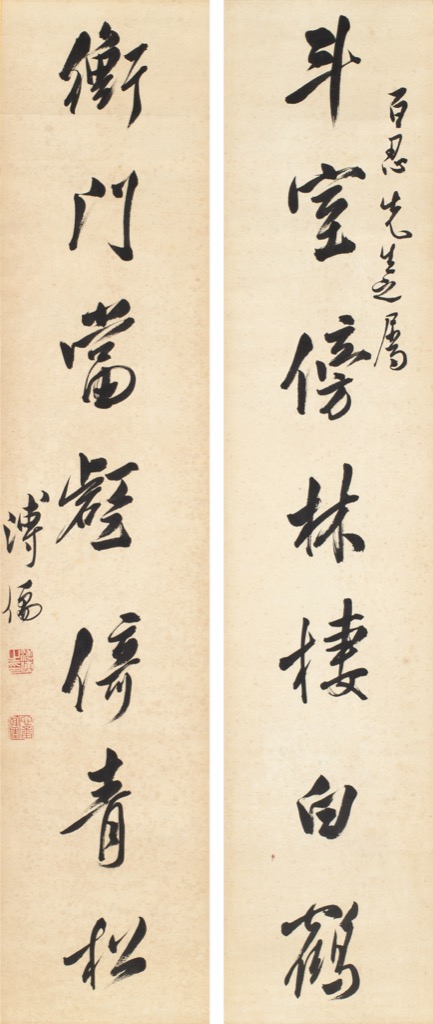 百忍先生之属
斗室傍林棲白鶴
衡門當壑倚青松
溥儒